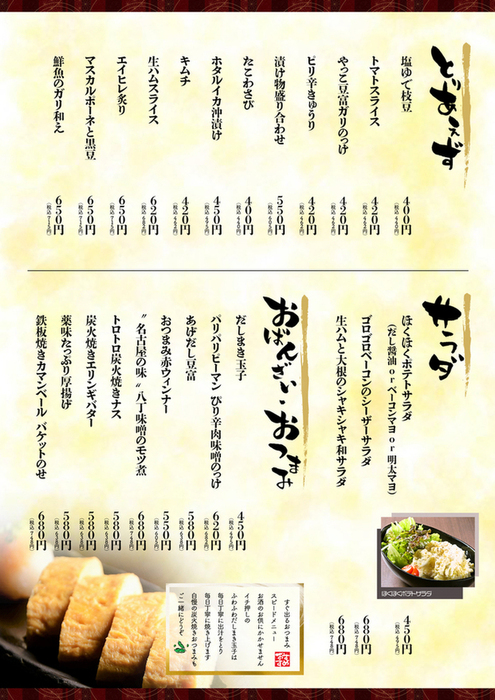 とりあえず
塩ゆで枝豆 400円 (税込440円)
トマトスライス 420円 (税込462円)
やっこ豆富ガリのっけ 420円 (税込462円)
ピリ辛きゅうり 420円 (税込462円)
漬け物盛り合わせ 550円 (税込605円)
たこわさび 400円 (税込440円)
ホタルイカ沖漬け 450円 (税込495円)
キムチ 420円 (税込462円)
生ハムスライス 620円 (税込682円)
エイヒレ炙り 650円 (税込715円)
マスカルポーネと黒豆 650円 (税込715円)
鮮魚のガリ和え 650円 (税込715円)
サラダ
ほくほくポテトサラダ 450円 (税込495円)
(だし醤油 or ベーコンマヨ or 明太マヨ)
ゴロゴロベーコンのシーザーサラダ 680円 (税込748円)
生ハムと大根のシャキシャキ和サラダ 680円 (税込748円)
ほくほくポテトサラダ
おばんざい・おつまみ
だしまき玉子 450円 (税込495円)
パリパリピーマン ぴり辛肉味噌のっけ 620円 (税込682円)
あげだし豆富 580円 (税込638円)
おつまみ赤ウィンナー 550円 (税込605円)
“名古屋の味”八丁味噌のモツ煮 680円 (税込748円)
トロトロ炭火焼きナス 580円 (税込638円)
炭火焼きエリンギバター 580円 (税込638円)
薬味たっぷり厚揚げ 580円 (税込638円)
鉄板焼きカマンベール バケットのせ 680円 (税込748円)
すぐ出るおつまみ
スピードメニュー
お酒のお供にかかせません
イチ押しの
ふわふわだしまき玉子は
毎日丁寧に出汁をとり
毎日丁寧に焼き上げます
自慢の炭火焼きおつまみも
ご一緒にどうぞ
おすすめです